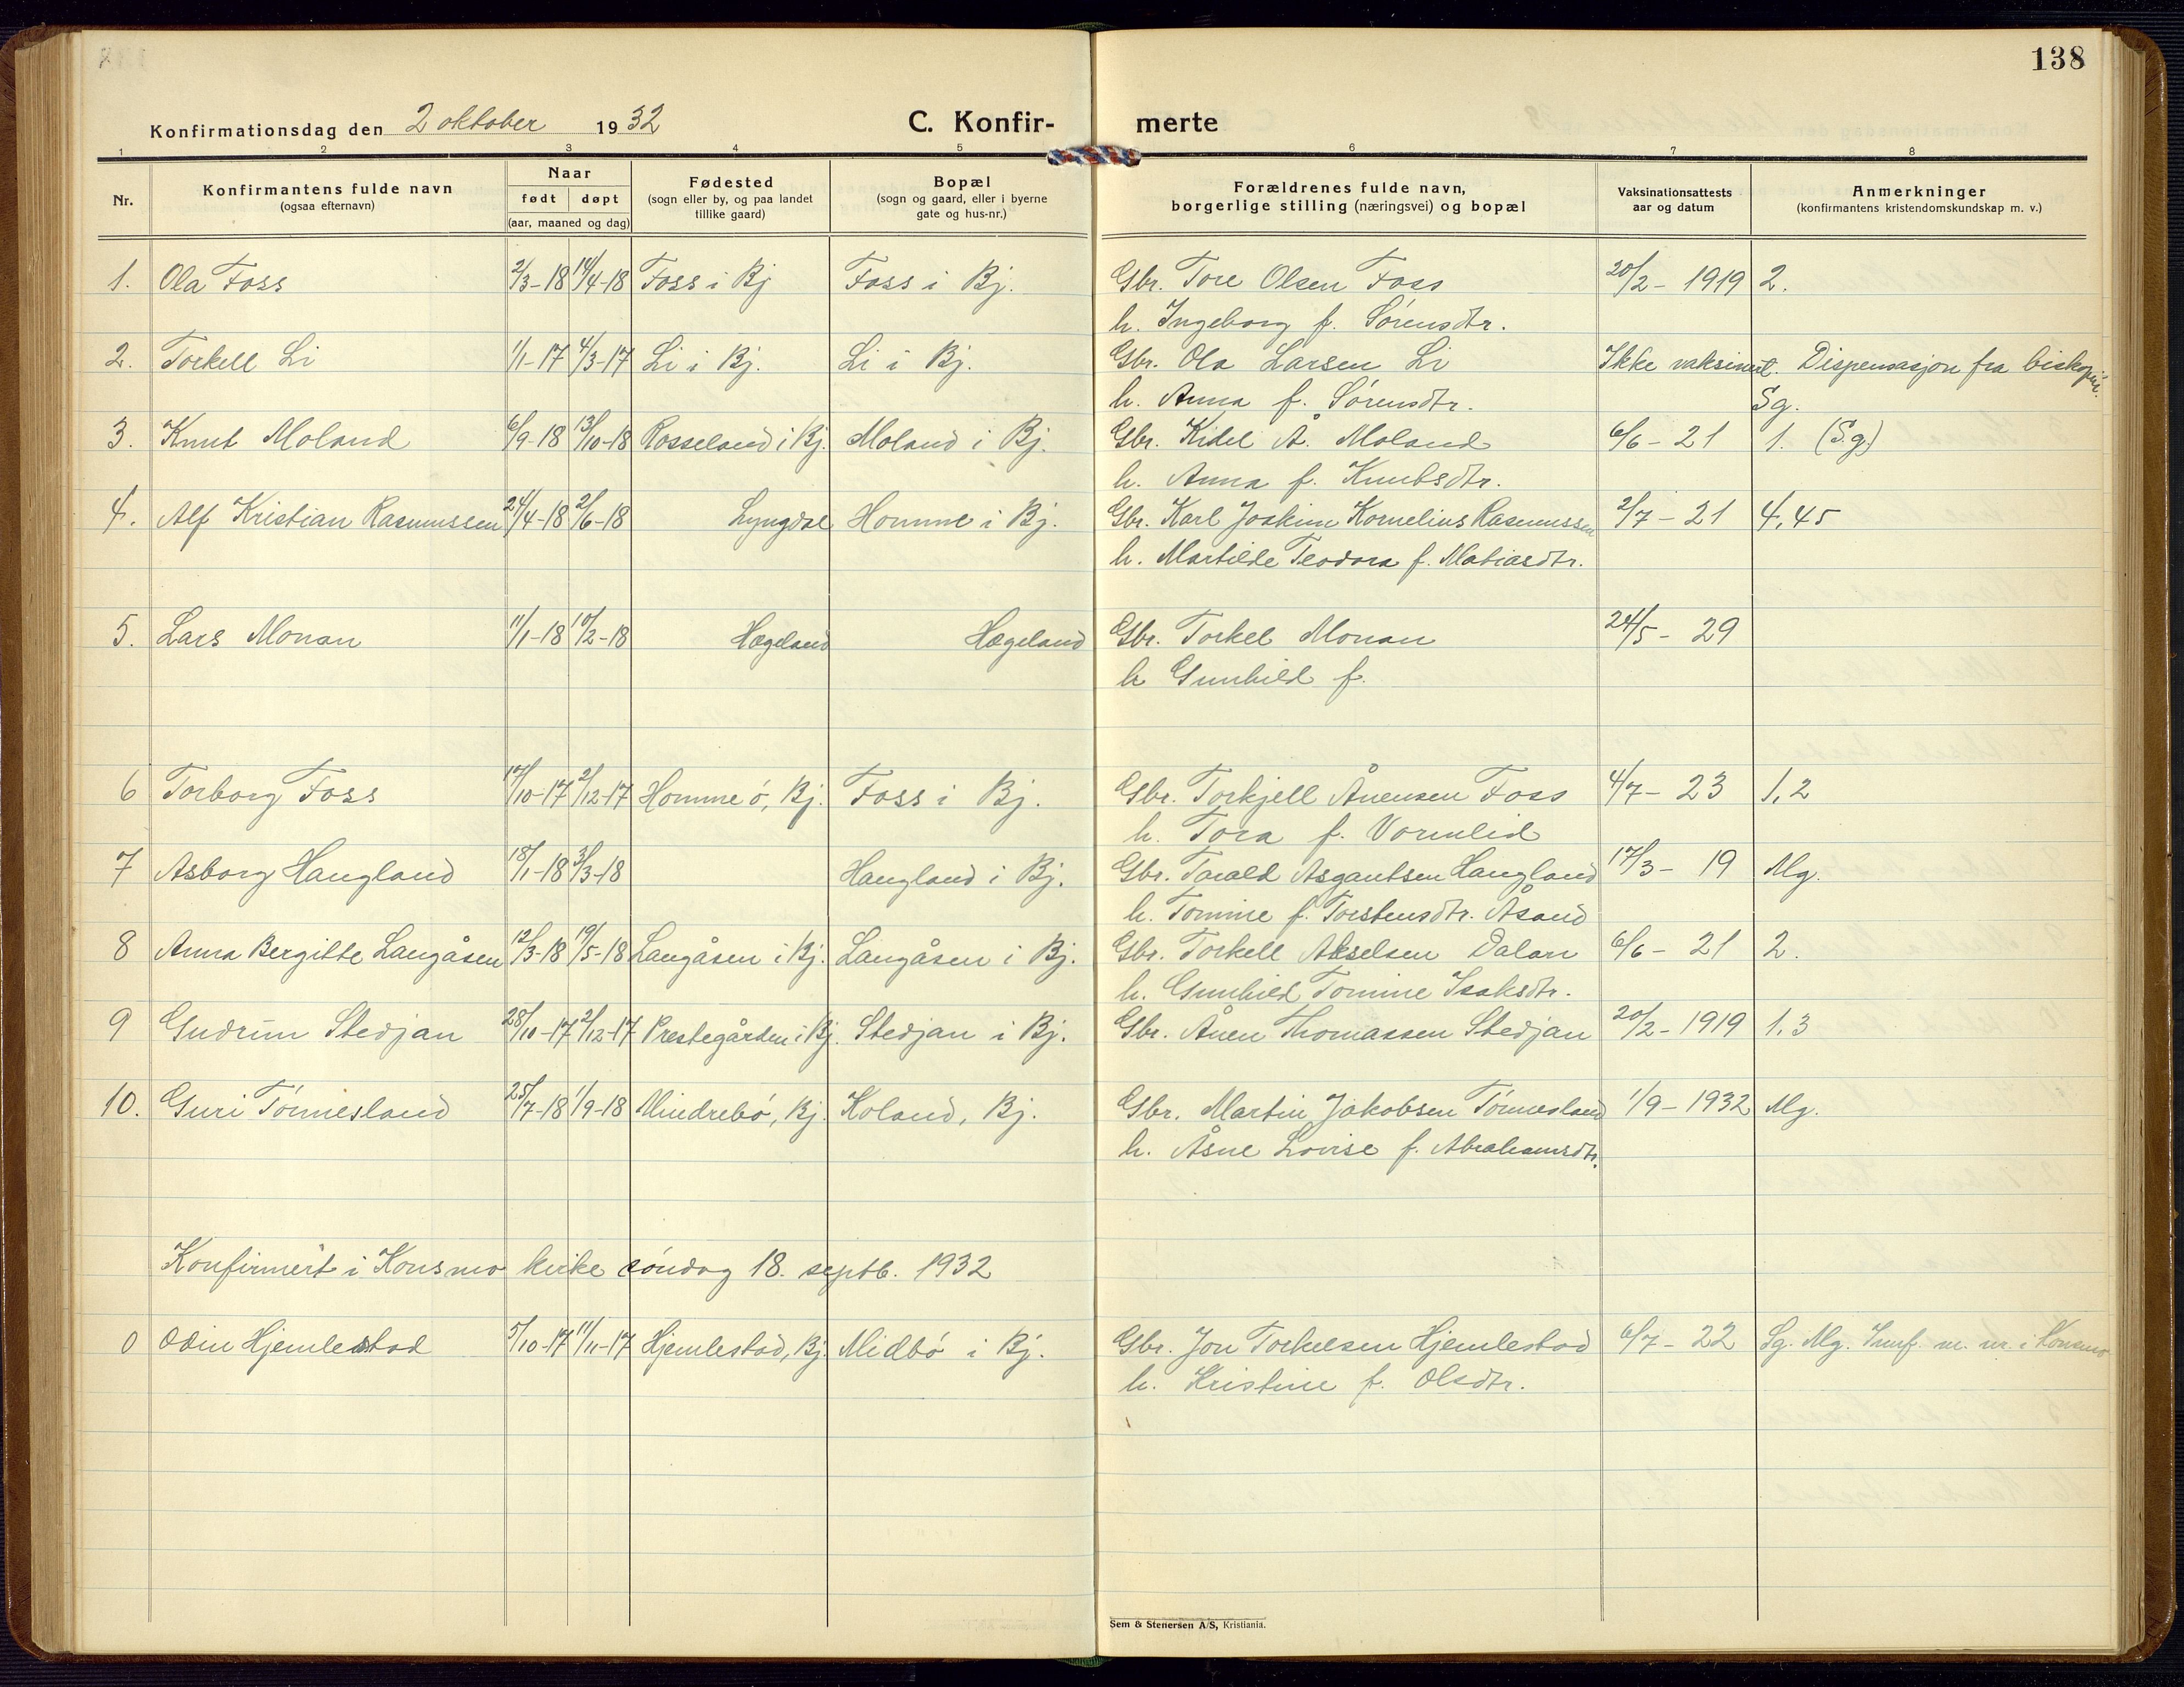 138
Konfirmationsdag den 2 oktober 1932 C. Konfir- merte
1 2 3 4 5 6 7 8
Nr. Konfirmantens fulde navn (ogsaa efternavn) Naar født døpt (aar, maaned og dag) Fødested (sogn eller by, og paa landet tillike gaard) Bopæl (sogn og gaard, eller i byerne gate og hus-nr.) Forældrenes fulde navn, borgerlige stilling (næringsvei) og bopæl Vaksinationsattests aar og datum Anmerkninger (konfirmantens kristendomskundskap m. v.)
1. Ola Foss 2/3-18 14/4-18 Foss i Bj Foss i Bj. Gbr. Tore Olsen Foss 20/2 - 1919 2.
h. Ingeborg f. Sørensdtr.
2. Torkell Li 1/1-17 4/3-17 Li i Bj. Li i Bj. Gbr. Ola Larsen Li Ikke vaksinert. Dispensasjon fra biskopen.
h. Anna f. Sørensdtr. Sg.
3. Knut Moland 6/9-18 13/10-18 Rosseland i Bj. Moland i Bj. Gbr. Kidel Å. Moland 6/6 - 21 1. (S.g.)
h. Anna f. Knutsdtr.
4. Alf Kristian Rasmussen 24/4-18 2/6-18 Lyngdal Homme i Bj. Gbr. Karl Joakim Kornelius Rasmussen 2/7 - 21 4,45
h. Martilde Teodora f. Matiasdtr.
5. Lars Monan 11/1-18 10/2-18 Hægeland Hægeland Gbr. Torkel Monan 24/5 - 29
h Gunhild f.
6 Torborg Foss 17/10-17 2/12-17 Homme ø, Bj. Foss i Bj. Gbr. Torkjell Ånensen Foss 4/7 - 23 1,2
h. Tora f. Vormlid
7 Asborg Haugland 18/1-18 3/3-18 Haugland i Bj. Gbr. Tarald Asgautsen Haugland 17/3 - 19 Mg.
h. Tomine f. Torstensdtr. Åsand
8 Anna Bergitte Langåsen 12/3-18 19/5-18 Langåsen i Bj. Langåsen i Bj. Gbr. Torkell Akselsen Dalan 6/6 - 21 2.
h. Gunhild Tomine Isaksdtr.
9 Gudrun Stedjan 28/10-17 2/12-17 Prestegården i Bj. Stedjan i Bj. Gbr. Ånen Thomassen Stedjan 20/2 - 1919 1,3
10. Guri Tønnesland 25/7-18 1/9-18 Mindrebø, Bj. Holand, Bj. Gbr. Martin Jakobsen Tønnesland 1/9 - 1932 Mg.
h. Åsne Lovise f. Abrahamsdtr.
Konfirmert i Konsmo kirke søndag 18. septb. 1932
0 Odin Hjemlestad 5/10-17 11/11-17 Hjemlestad, Bj Midbø i Bj. Gbr. Jon Torkelsen Hjemlestad 6/7 - 22 Sg. Mg. m. nr. i Konsmo
h. Kristine f. Olsdtr.
Sem & Stenersen A/S, Kristiania.